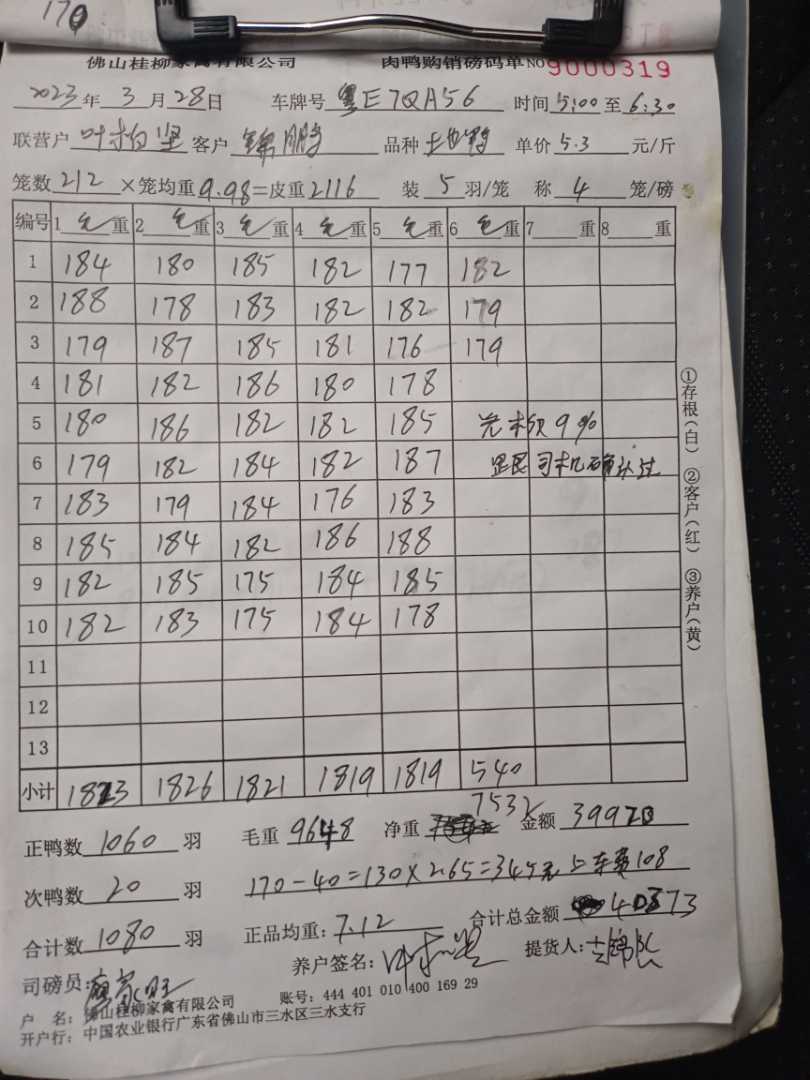 170
佛山桂柳家禽有限公司 肉鸭购销磅码单 NO 9000319
2023年3月28日 车牌号 粤E7QA56 时间5:00至6:30
联营户 叶柏坚 客户 锦鹏 品种 土白鸭 单价5.3元/斤
笼数212×笼均重9.98=皮重2116 装5羽/笼 称4笼/磅
编号 1毛重 2毛重 3毛重 4毛重 5毛重 6毛重 7 重 8 重
1 184 180 185 182 177 182
2 188 178 183 182 182 179
3 179 187 185 181 176 179
4 181 182 186 180 178
5 180 186 182 182 185 9%
6 179 182 184 182 187 司机确认过
7 183 179 184 176 183
8 185 184 182 186 188
9 182 185 175 184 185
10 182 183 175 184 178
11
12
13
小计 1823 1826 1821 1819 1819 540
正鸭数1060羽 毛重9648 净重7532 金额39920
次鸭数20羽 170-40=130×2.65=345元 车费108
合计数1080羽 正品均重:7.12 合计总金额40373
司磅员: 养户签名: 提货人:
户 名: 佛山桂柳家禽有限公司 账号: 444 401 010 400 169 29
开户行: 中国农业银行广东省佛山市三水区三水支行
①存根(白) ②客户(红) ③养户(黄)